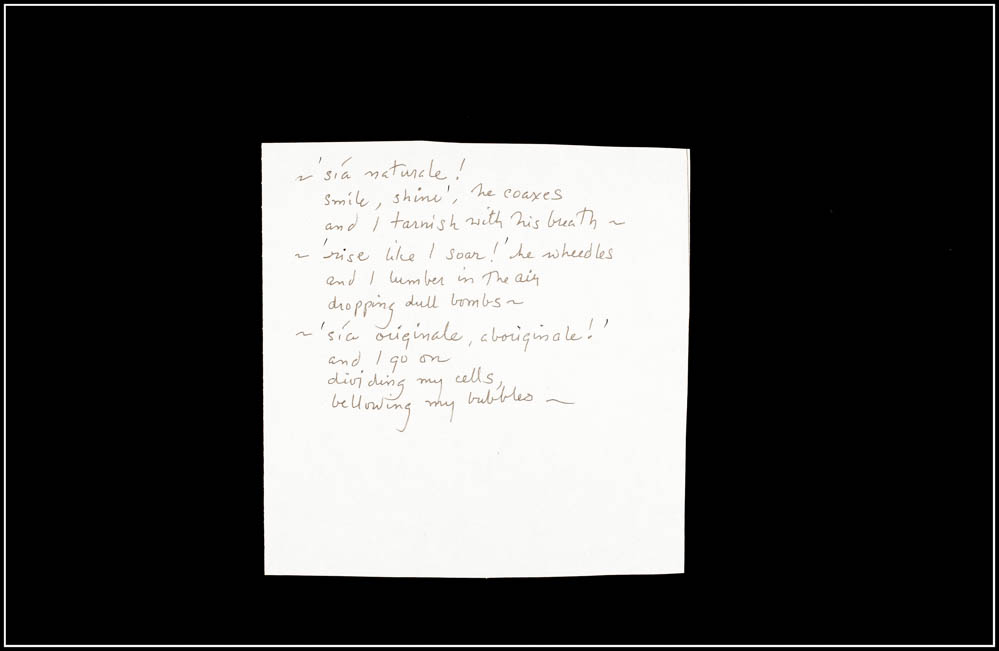 ~ 'sía naturale!
smile, shine', he coaxes
and I tarnish with his breath ~
~ 'rise like I soar!' he wheedles
and I lumber in the air
dropping dull bombs ~
~ 'sía originale, aboriginale!'
and I go on
dividing my cells,
bellowing my bubbles ~